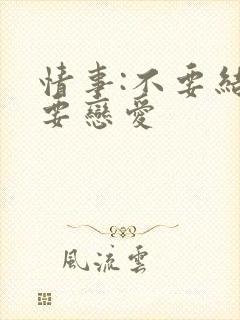 情事:不要結
要戀愛
風流雲